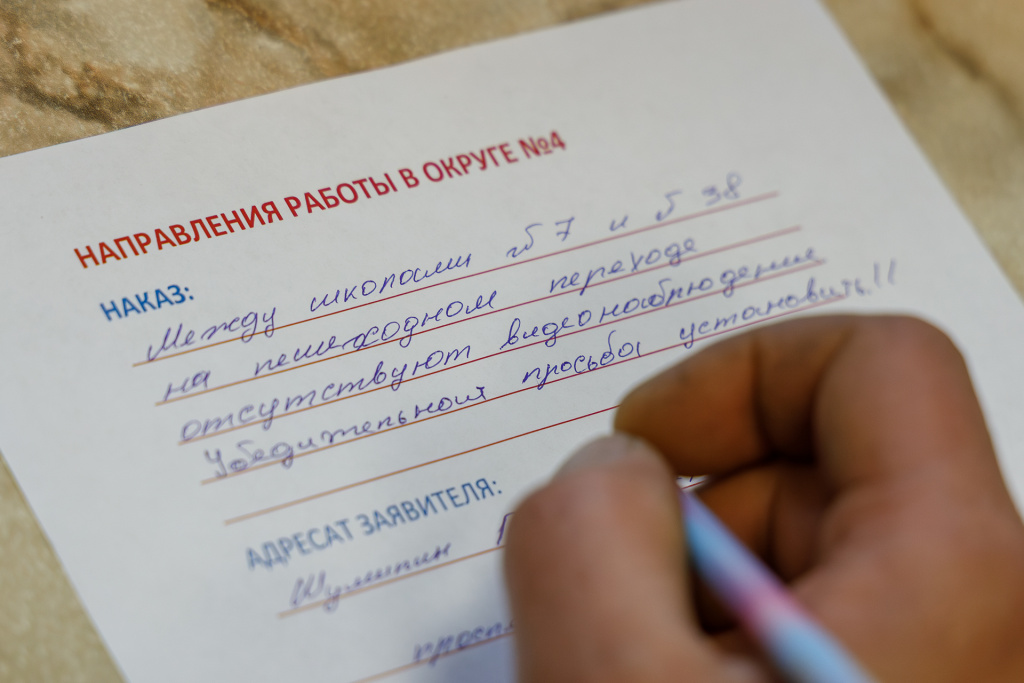 НАПРАВЛЕНИЯ РАБОТЫ В ОКРУГЕ №4
НАКАЗ:
Между школами 7 и 38
на пешеходном переходе
отсутствуют видеонаблюдение
Убедительная просьба установить!!
АДРЕСАТ ЗАЯВИТЕЛЯ: